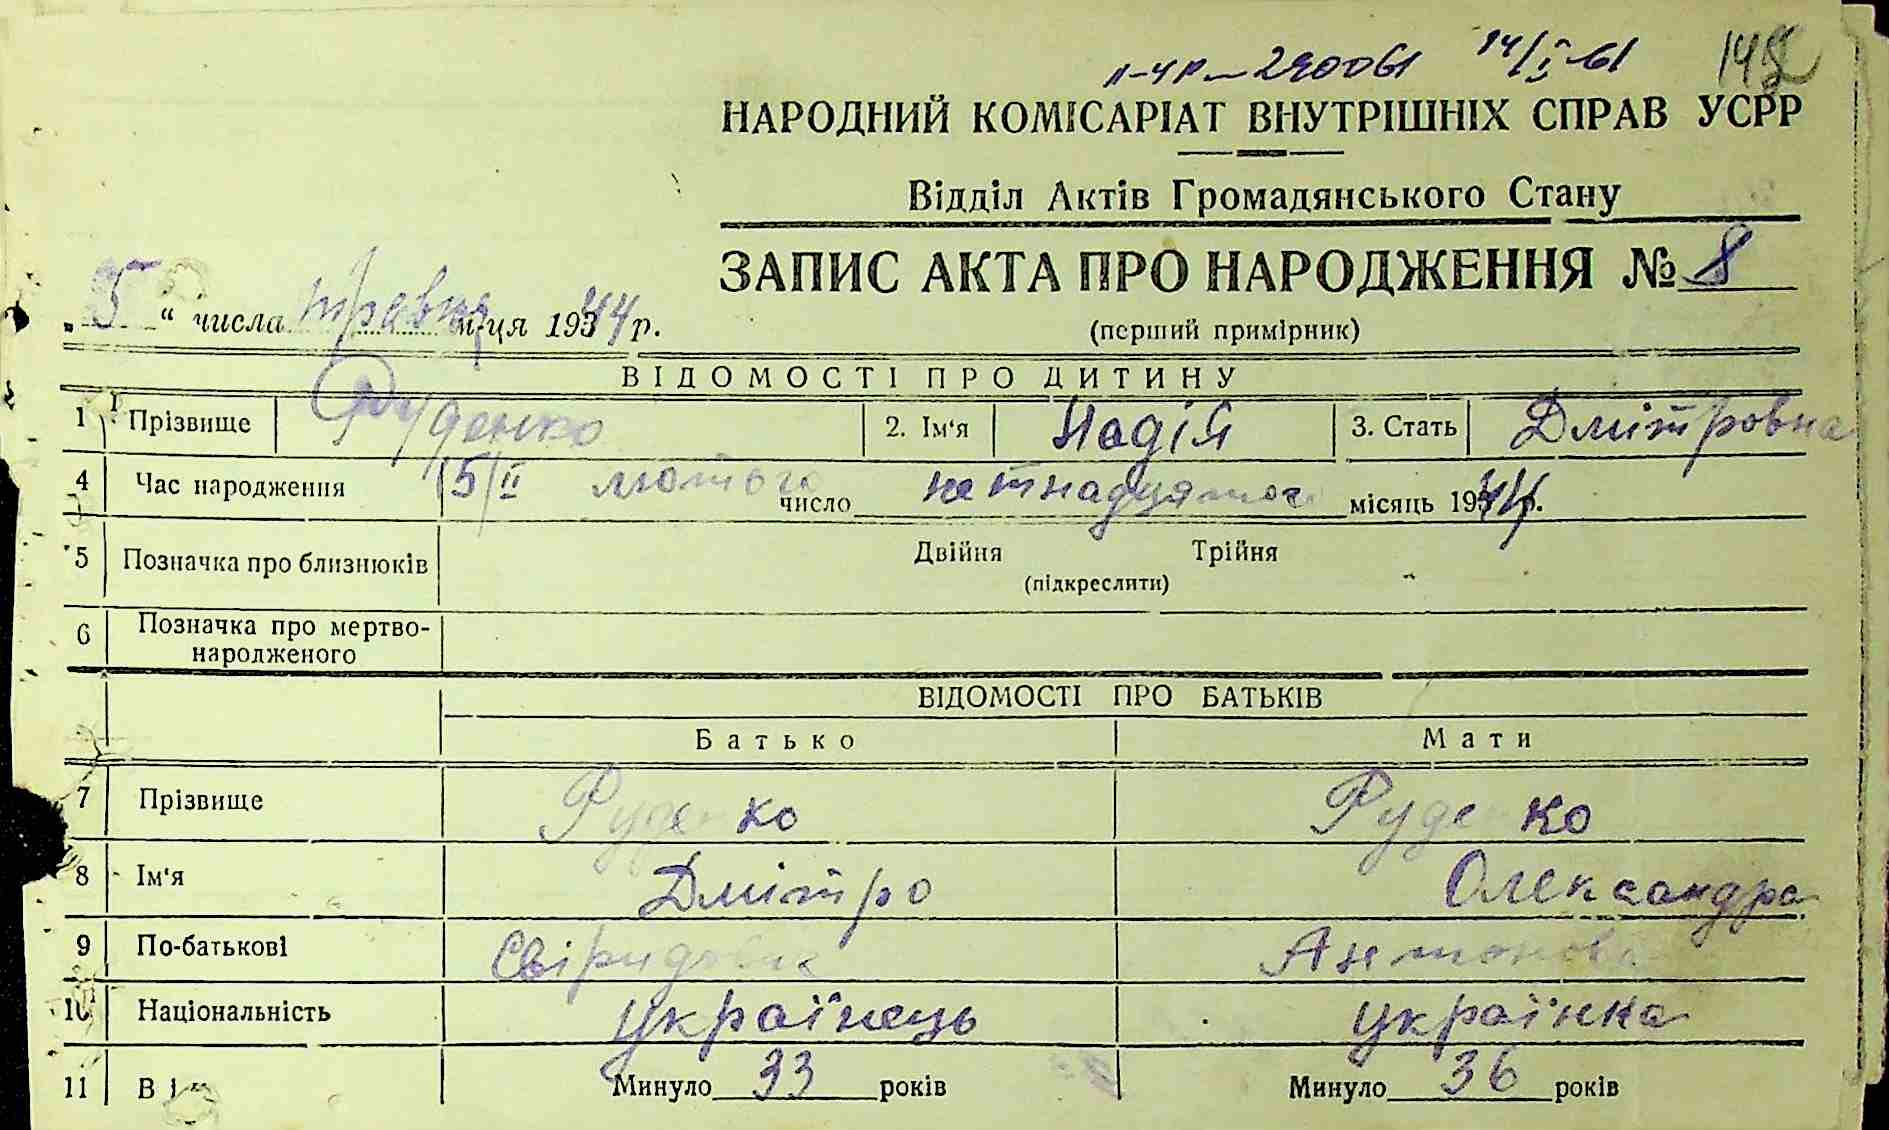 II-ЧР-290061 14/I-61
НАРОДНИЙ КОМІСАРІАТ ВНУТРІШНІХ СПРАВ УСРР
Відділ Актів Громадянського Стану
ЗАПИС АКТА ПРО НАРОДЖЕННЯ № 8
„5“ числа травня м-ця 1944 р.
(перший примірник)
ВІДОМОСТІ ПРО ДИТИНУ
1 Прізвище Руденко 2. Ім'я Надія 3. Стать Дмітровна
4 Час народження 15/II лютого число петнадцятого місяць 1944 р.
5 Позначка про близнюків Двійня Трійня
(підкреслити)
6 Позначка про мертво-
народженого
ВІДОМОСТІ ПРО БАТЬКІВ
Батько Мати
7 Прізвище Руденко Руденко
8 Ім'я Дмітро Олександра
9 По-батькові Свіридович Антонова
10 Національність українець українка
11 Вік Минуло 33 років Минуло 36 років